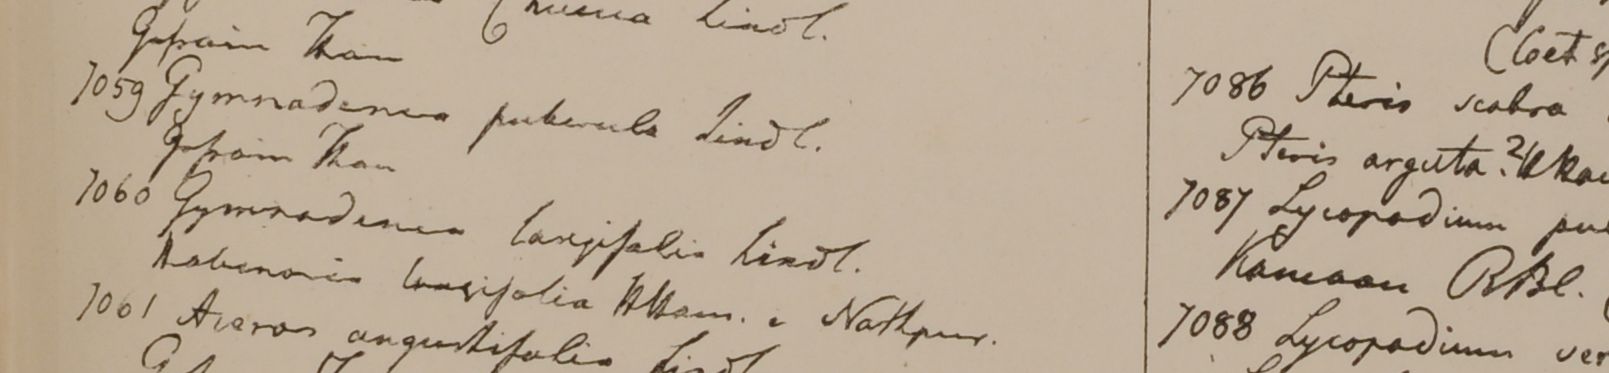 Lindl.
Gosain Than
7059 Gymnadenia puberula Lindl.
Gosain Than
7060 Gymnadenia longifolia Lindl.
Habenaria longifolia HHam. e Nathpur.
7061 Aceras angustifolia Lindl
7086 Pteris scabra
Pteris arguta?
7087 Lycopodium
Kamaon RBl.
7088 Lycopodium